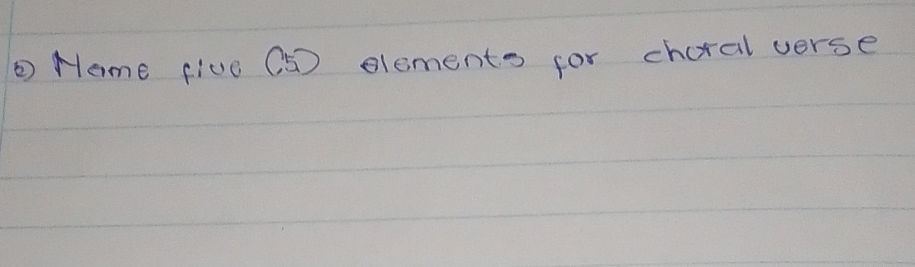 ② Name five (5) elements for choral verse